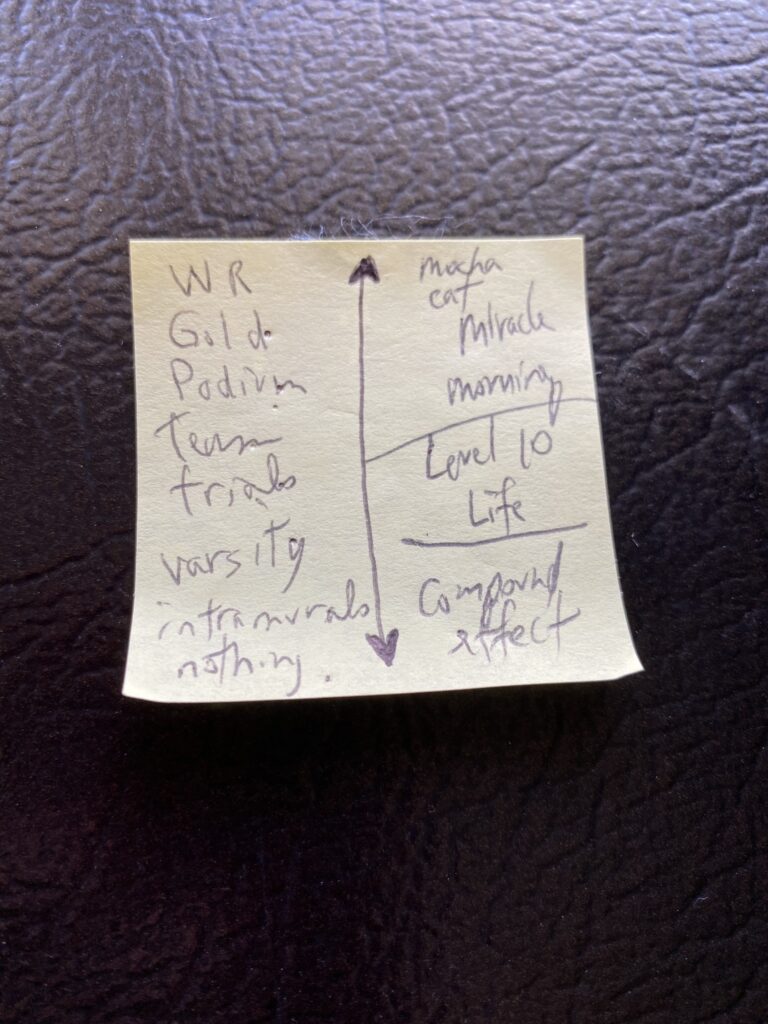 WR
Gold
Podium
Team
trials
varsity
intramurals
nothing.
mocha
cat
Miracle
morning
Level 10
Life
Compound
effect